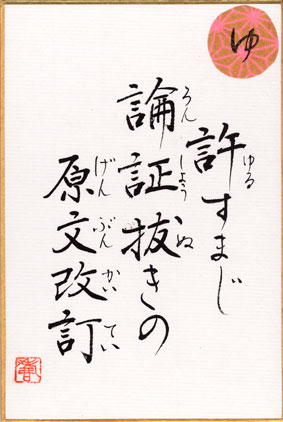 ゆ
許すまじ
論証抜きの
原文改訂
ゆる
ろんしょうぬ
げんぶんかいてい